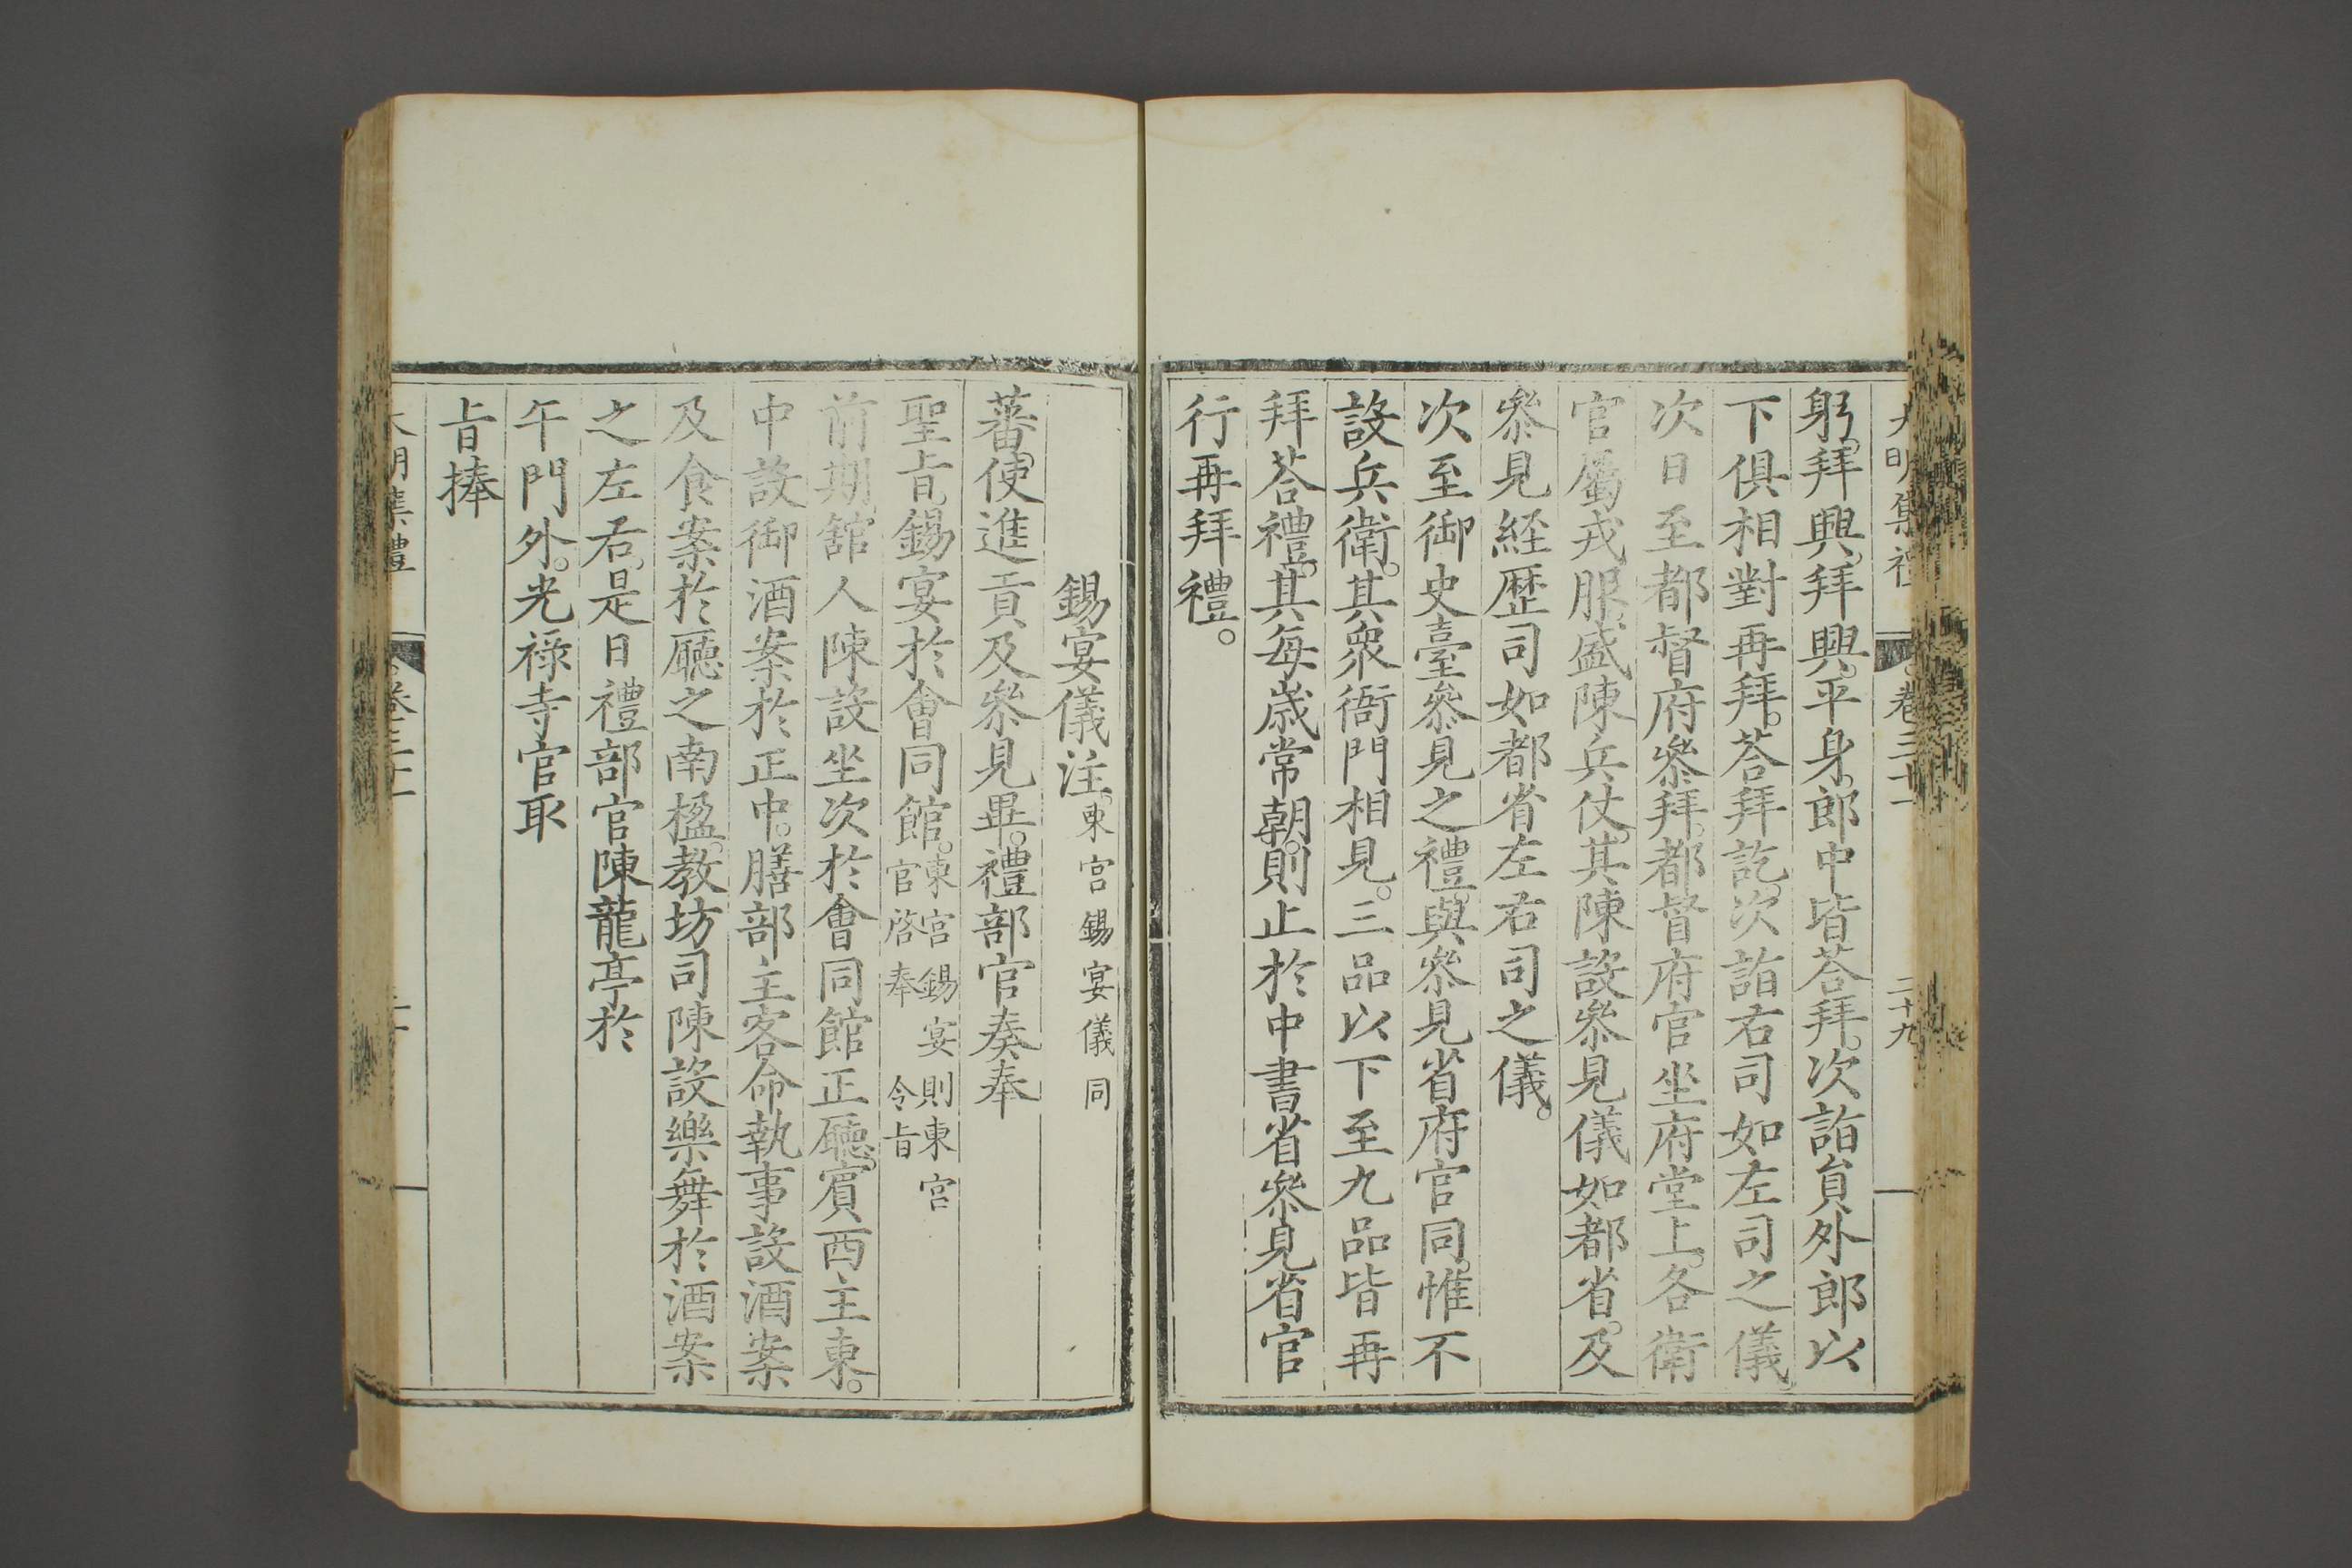 大明集禮 卷三十一 二十九
躬。拜。興。拜。興。平身。郎中皆荅拜。次詣貟外郎以
下俱相對再拜。荅拜訖。次詣右司如左司之儀。
次日至都督府叅拜。都督府官坐府堂上。各衛
官屬戎服。盛陳兵仗。其陳設叅見儀如都省。及
叅見經歷司如都省左右司之儀。
次至御史臺叅見之禮。與叅見省府官同。惟不
設兵衛。其衆衙門相見。三品以下至九品皆再
拜荅禮。其每嵗常朝。則止於中書省叅見省官
行再拜禮。
錫宴儀注。東宮錫宴儀同
蕃使進貢及叅見畢。禮部官奏奉
聖㫖。錫宴於會同館。東宮錫宴則東宮
官啓奉令㫖
前期。舘人陳設坐次於會同館正廳。賔西主東。
中設御酒案於正中。膳部主客命執事設酒案
及食案於廳之南楹。教坊司陳設樂舞於酒案
之左右。是日禮部官陳龍亭於
午門外。光祿寺官取
㫖捧
大明集禮 卷三十一